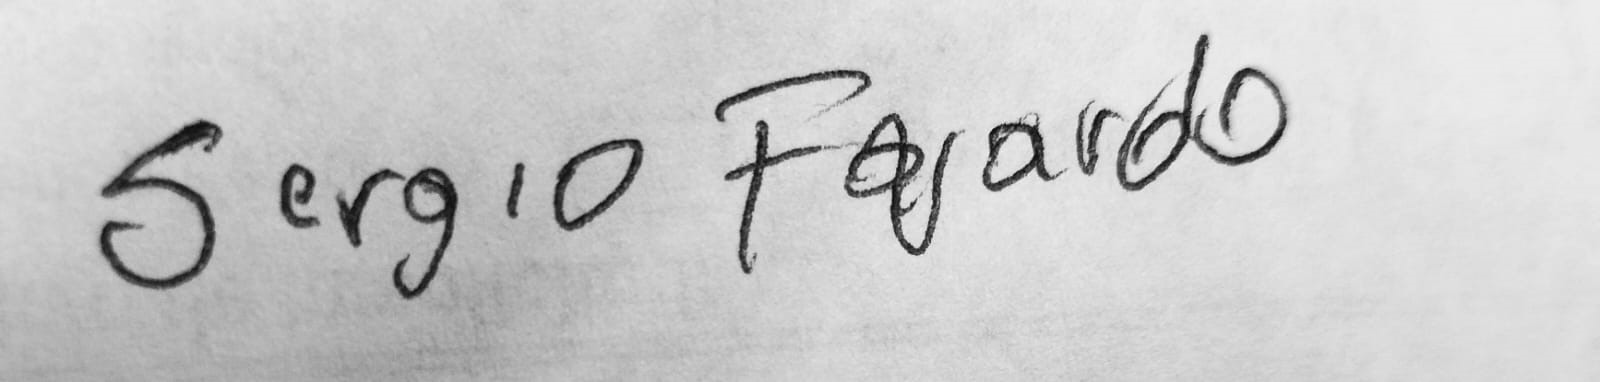 Sergio Fajardo